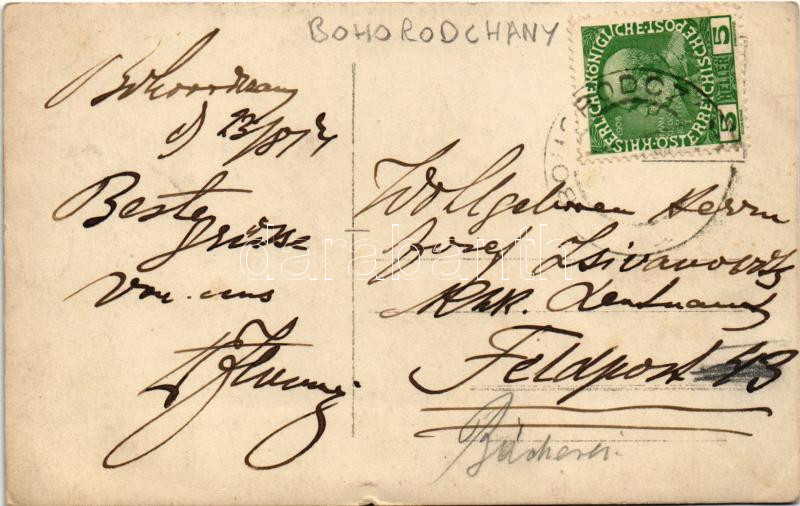 BOHORODCHANY
KAISERLICHE KÖNIGLICHE ÖSTERREICHISCHE POST
5 HELLER 5
1908
BOHORODCZ
Bohorodczany
d 23/8 14
Beste
Grüsse
von uns
Wollgeborenen Herrn
Josef Zsivanovits
k.u.k. Leutnant
Feldpost 43
Bäckerei.
darabanth